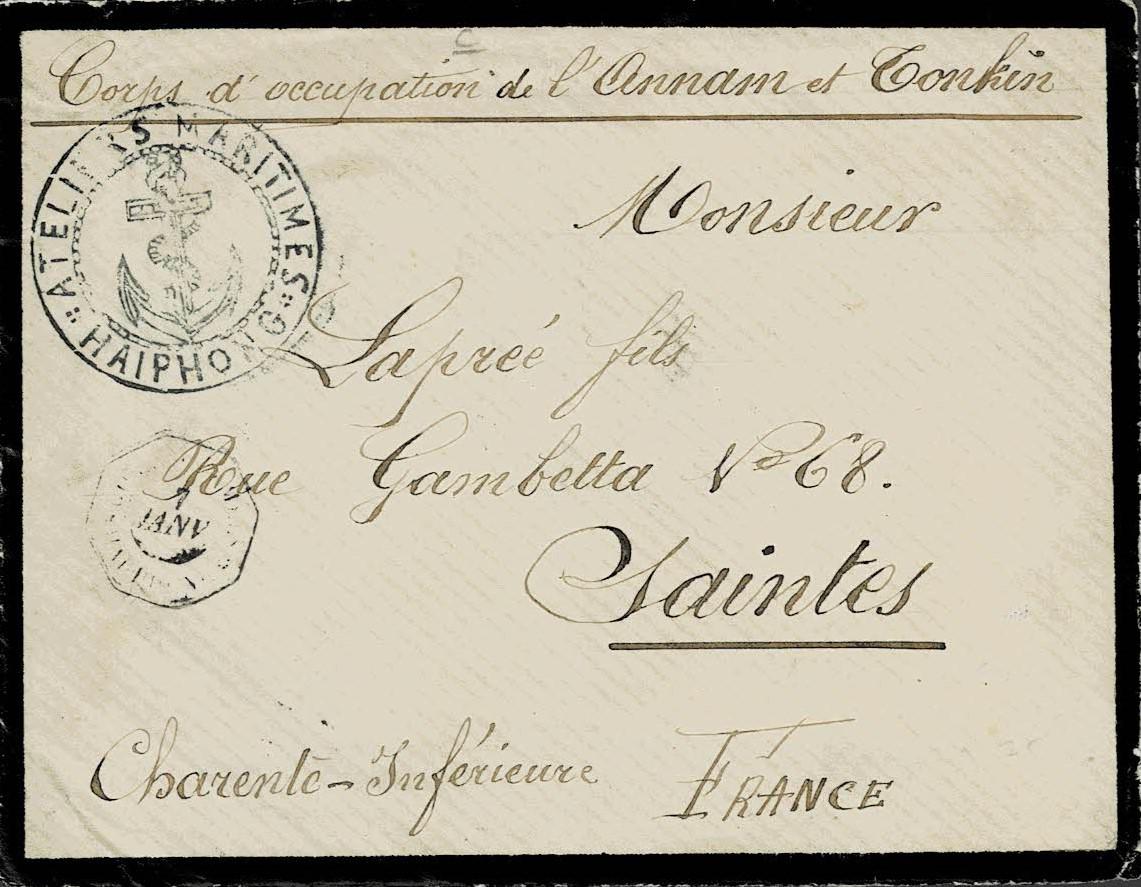 Corps d'occupation de l'Annam et Tonkin
ATELIERS MARITIMES
HAIPHONG
Monsieur
Laprée fils
Rue Gambetta N° 68.
JANV
Saintes
Charente-Inférieure FRANCE